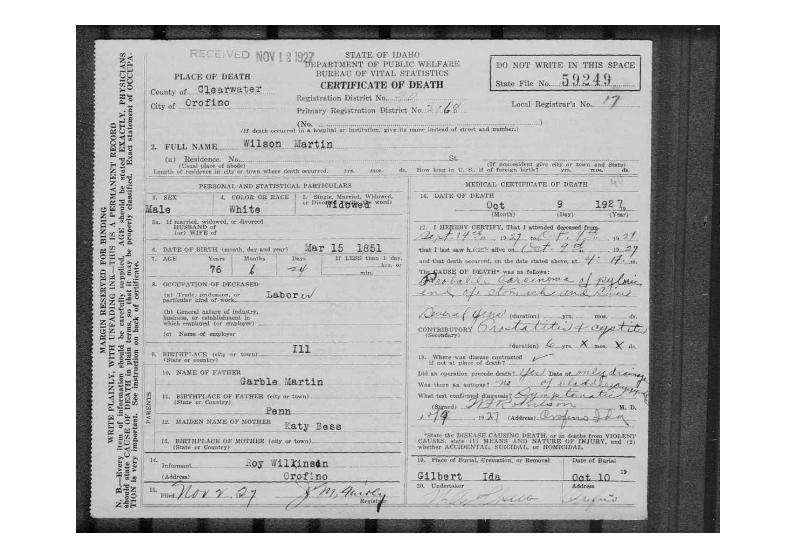 RECEIVED NOV 12 1927
STATE OF IDAHO
DEPARTMENT OF PUBLIC WELFARE
BUREAU OF VITAL STATISTICS
CERTIFICATE OF DEATH
DO NOT WRITE IN THIS SPACE
State File No. 59249
PLACE OF DEATH
County of Clearwater
City of Orofino
Registration District No.
Primary Registration District No. 2168
Local Registrar's No. 17
(No.
(If death occurred in a hospital or institution, give its name instead of street and number.)
2. FULL NAME Wilson Martin
(a) Residence. No. St.
(Usual place of abode)
(If nonresident give city or town and State)
Length of residence in city or town where death occurred. yrs. mos. ds. How long in U. S., if of foreign birth? yrs. mos. ds.
PERSONAL AND STATISTICAL PARTICULARS
3. SEX 4. COLOR OR RACE 5. Single, Married, Widowed, or Divorced (write the word)
Male White Widowed
5a. If married, widowed, or divorced
HUSBAND of
(or) WIFE of
6. DATE OF BIRTH (month, day and year) Mar 15 1851
7. AGE Years Months Days If LESS than 1 day,
76 6 24 hrs. or
min.
8. OCCUPATION OF DECEASED
(a) Trade, profession, or
particular kind of work Laborer
(b) General nature of industry,
business, or establishment in
which employed (or employer)
(c) Name of employer
9. BIRTHPLACE (city or town) Ill
(State or country)
PARENTS
10. NAME OF FATHER
Garble Martin
11. BIRTHPLACE OF FATHER (city or town)
(State or Country)
Penn
12. MAIDEN NAME OF MOTHER Katy Bess
13. BIRTHPLACE OF MOTHER (city or town)
(State or country)
14. Informant Roy Wilkinson
(Address) Orofino
15. Filed Nov 2 27
Registrar
MEDICAL CERTIFICATE OF DEATH
16. DATE OF DEATH
Oct 9 1927
(Month) (Day) (Year)
17. I HEREBY CERTIFY, That I attended deceased from
Sept 19th 1927 to Oct. 9th 1927
that I last saw h alive on Oct 9th 1927
and that death occurred, on the date stated above, at 4: m.
The CAUSE OF DEATH* was as follows:
Probable Carcinoma of pyloric
end of stomach and
Several years (duration) yrs. mos. ds.
CONTRIBUTORY Prostatitis & cystitis
(Secondary)
(duration) 6 yrs. X mos. X ds.
18. Where was disease contracted
if not at place of death?
Did an operation precede death? yes Date of only drainage
Was there an autopsy? no of bladder
What test confirmed diagnosis? Symptomatic
(Signed) M. D.
10/9 1927 (Address) Orofino Ida
*State the DISEASE CAUSING DEATH, or in deaths from VIOLENT
CAUSES, state (1) MEANS AND NATURE OF INJURY, and (2)
whether ACCIDENTAL, SUICIDAL, or HOMICIDAL.
19. Place of Burial, Cremation, or Removal Date of Burial
Gilbert Ida Oct 10 19
20. Undertaker Address
Orofino
MARGIN RESERVED FOR BINDING
WRITE PLAINLY, WITH UNFADING INK—THIS IS A PERMANENT RECORD
N. B.—Every item of information should be carefully supplied. AGE should be stated EXACTLY, PHYSICIANS
should state CAUSE OF DEATH in plain terms, so that it may be properly classified. Exact statement of OCCUPA-
TION is very important. See instruction on back of certificate.